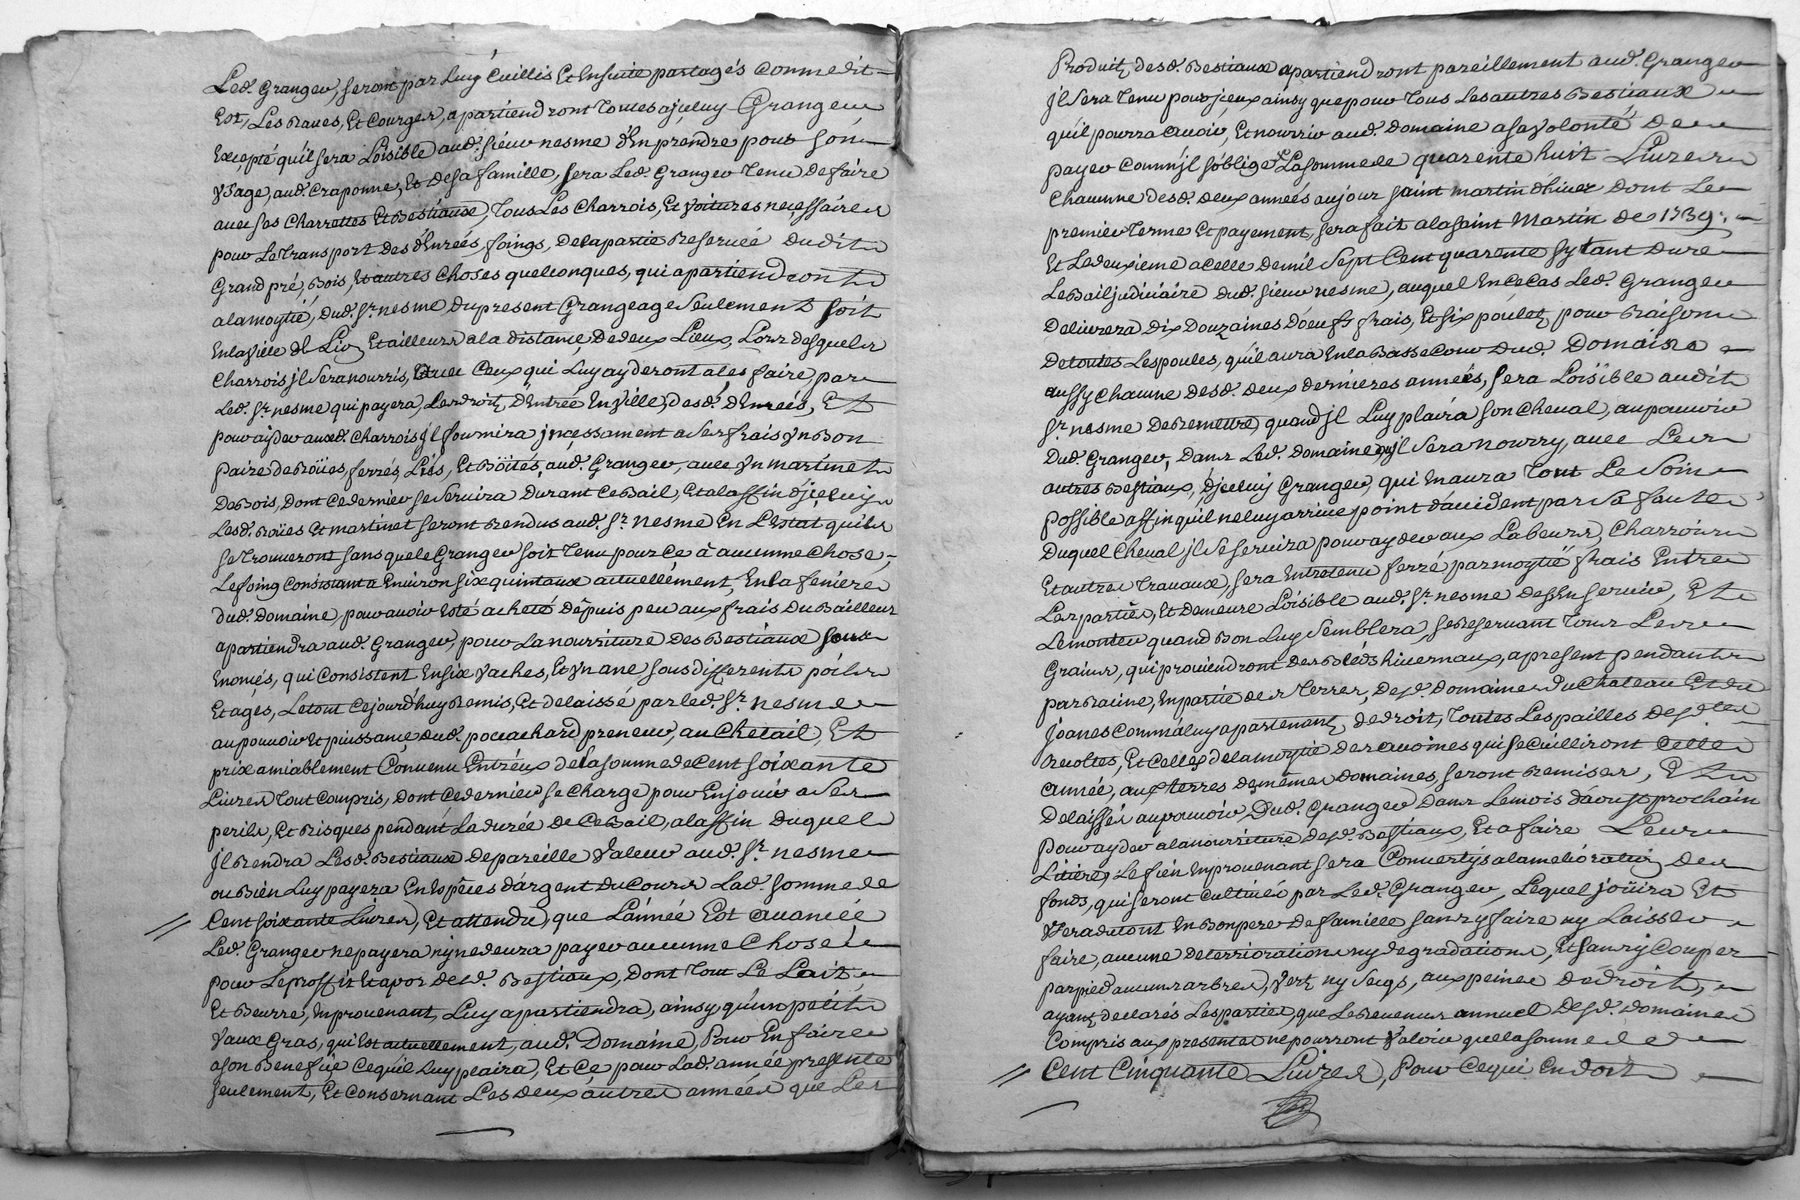 Led. Granger, seront par luy Cuillis Et Ensuite partagés Comme dit
Est, Les Raves, Et Courges, apartiendront Toutes ajceluy Granger
Excepté quil sera Loisible aud. sieur nesme d'En prendre pour son
Vsage, aud. Craponne, Et de sa famille, sera Led. Granger Tenu de faire
avec ses Charrettes Et Bestiaux, Tous Les Charrois, Et Voitures necessaires
pour Le Transport des dEnreés, foings, de la partie Reservée dudit
Grand pré, Bois, Et autres Choses quelconques, qui apartiendront
alamoytié, dud. Sr. nesme du present Grangeage seulement soit
En la Ville de Lion Et ailleurs ala distance de deux Lieux, Lors desquels
Charrois jl sera nourris, avec Ceux qui Luy ayderont ales faire, par
Led. Sr. nesme qui payera, Les droits d'Entrée En Ville, desd. dEnreés, Et
pour ayder auxd. Charrois jl fournira jncessament a ses frais Vn Bon
paire de Roües, ferrés, Liés, Et Boités, aud. Granger, avec Vn martinet
de Bois, dont Ce dernier se Servira durant Ce Bail, Et alaffin d'jceluy
Lesd. Roües Et martinet seront Rendus aud. Sr. nesme En L'Estat quils
se Trouveront sans que le Granger soit Tenu pour Ce à aucunne Chose,
Le foing Consistant a Environ six quintaux actuellement, En la feniere
dud. Domaine, pour avoir Esté acheté depuis peu aux frais du Bailleur
apartiendra aud. Granger, pour La nourriture des Bestiaux sous
Enomés, qui Consistent En six Vaches, Et Vn ane sous differents poils
Et ages, Le tout Cejourd'huy Remis, Et delaissé par led. Sr. nesme
au pouvoir Et puissance dud. preneur, au Chetail, Et
prix amiablement Convenu Entréux de la somme de Cent soixante
Livres Tout Compris, dont Ce dernier se Charge pour En jouir a ses
perils, Et Risques pendant La durée de Ce Bail, alaffin duquel
jl Rendra Lesd. Bestiaux de pareille Valeur aud. Sr. nesme
ou Bien Luy payera En Espèces d'argent du Cours Lad. somme de
Cent soixante Livres, Et attendu, que L'année Est avancée
Led. Granger ne payera ny ne devra payer aucunne Chose
pour Le proffit Et apor desd. Bestiaux, dont Tout Le Lait,
Et Beurre, En provenant, Luy apartiendra, ainsy qu'un petit
Vaux Gras, qui Est actuellement, aud. Domaine, Pour En faire
a son Benefice Ce quil Luy plaira, Et Ce pour Lad. année presente
seulement, Et Consernant Les deux autres années que Les
Produits desd. Bestiaux apartiendront pareillement aud. Granger
jl sera Tenu pour jceux ainsy que pour Tous Les autres Bestiaux
qu'il pourra avoir, Et nourrir aud. Domaine a sa Volonté de
payer Comm'jl soblige La somme de quarente huit Livres
Chacunne desd. deux années au jour saint martin d'hiver dont Le
premier Terme Et payement, sera fait ala saint Martin de 1739.
Et Le deuxieme a Celle de mil sept Cent quarente sy tant dure
Le Bail judiciaire dud. sieur nesme, auquel En Ce Cas Led. Granger
delivrera dix Douzaines d'oeufs frais, Et six poulets pour Raison
de toutes Les poules, quil aura En la Basse Cour dud. Domaine
aussy Chacune desd. deux dernieres années, sera Loisible audit
Sr. nesme de Remettre, quand jl Luy plaira son Cheval, au pouvoir
dud. Granger, Dans Led. Domaine ou jl sera nourry, avec Les
autres Bestiaux, d'jceluy Granger, qui En aura Tout Le Soin
possible affin quil ne luy arrive point d'accident par sa faute
duquel Cheval jl se servira pour ayder aux Labeurs, Charrois
Et autres Travaux, sera Entretenu ferré par moytié frais Entre
Les parties, Et demeure Loisible aud. Sr. nesme de sEn servir, Et
Le monter quand Bon Luy semblera, se Reservant Tous Les
Grains, qui proviendront des Bléds hivernaux, a present pendants
par Racine, En partie des Terres, desd. Domaines du Chateau Et du
Joanes Comm'aluy apartenants de droit, Toutes Les pailles desdites
Recoltes, Et Celles de la moytié des avoines qui se Cuilliront Cette
année, aux terres de mêmes Domaines, seront Remises, Et
delaisser au pouvoir dud. Granger Dans Le mois d'aoust prochain
pour ayder ala nourriture desd. Bestiaux, Et a faire Leur
Litiere, Le fien En provenant sera Convertys alamelioration des
fonds, qui seront Cultivés par Led. Granger, Lequel joüira Et
Vsera du tout En Bon pere de famille sans y faire ny Laisser
faire, aucune deterriorations ny degradations, Et sans y Couper
par pied aucuns arbres, Verts ny secqs, aux peines de droit,
ayants declarés Les parties, que Le Revenus annuel desd. Domaines
Compris aux presentes ne pourront Valoir que la somme de
Cent Cinquante Livres, Pour Ce qui En doit